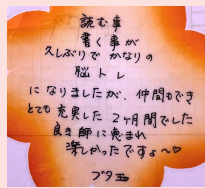 読む事
書く事が
久しぶりでかなりの
脳トレ
になりましたが、仲間もでき
とても充実した2ヶ月間でした
良き師に恵まれ
楽しかったですョ〜♡
ブタ玉